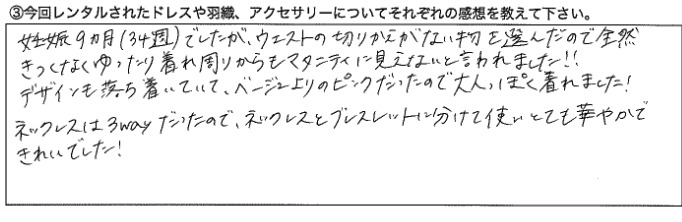 ③今回レンタルされたドレスや羽織、アクセサリーについてそれぞれの感想を教えて下さい。
妊娠9ヵ月(34週)でしたが、ウエストの切りかえがない物を選んだので全然
きつくなくゆったり着れ周りからもマタニティに見えないと言われました!!
デザインも落ち着いていて、ベージュよりのピンクだったので大人っぽく着れました!
ネックレスは3wayだったので、ネックレスとブレスレットに分けて使いとても華やかで
きれいでした!